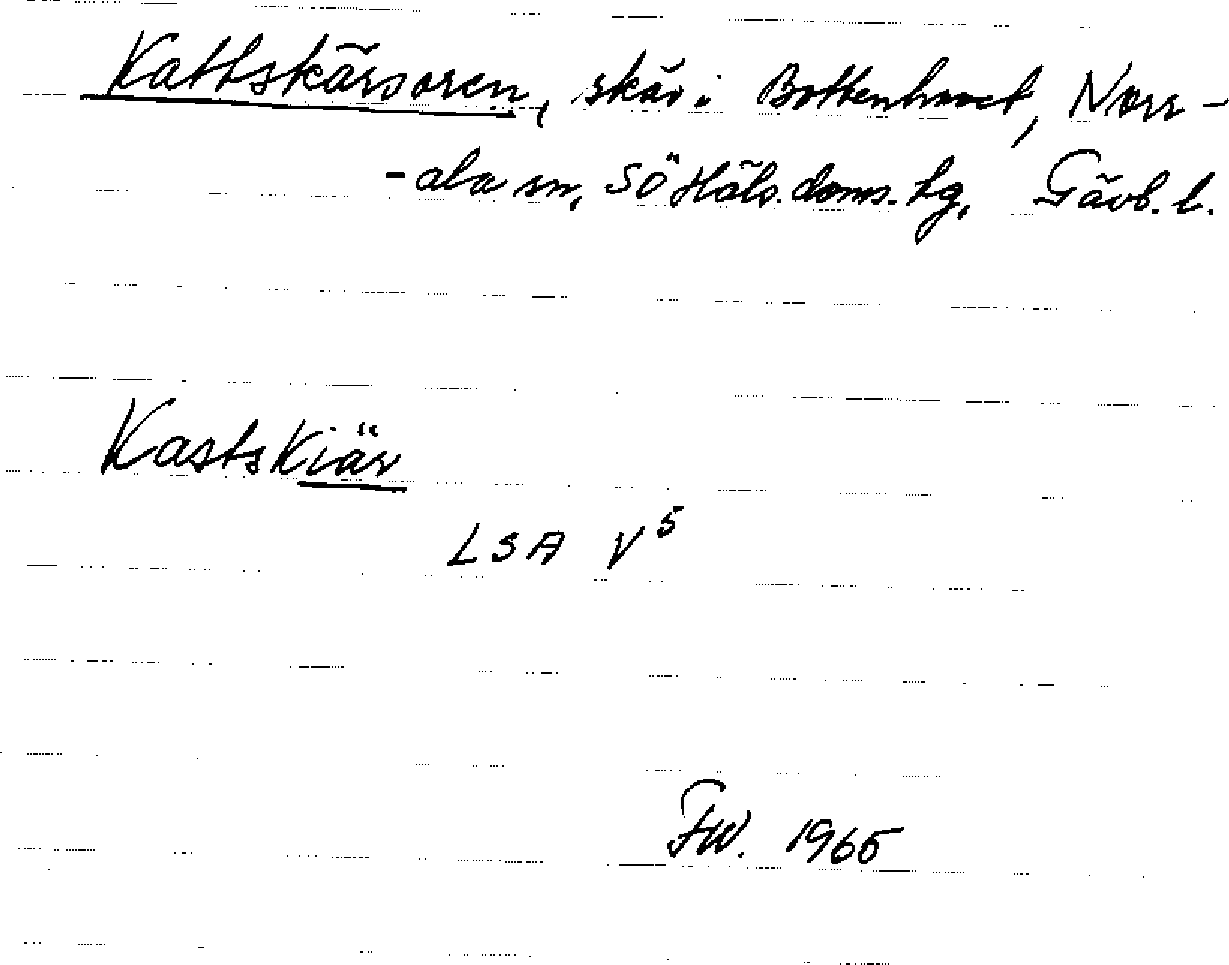 Kattskärsoren, skär i Bottenhavet, Norr-
-ala sn, Sö Häls. doms. hg, Gävb. l.
Kastskiär
LSA V5
FW. 1965